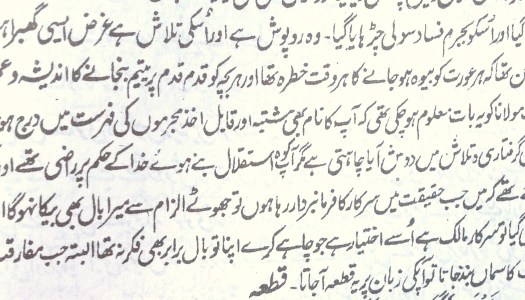 کیا اور اُسکو بجرم فساد سولی چڑہایا گیا۔ وہ روپوش ہے اور اُسکی تلاش ہے غرض ایسی گھبراہ
تھا کہ ہر عورت کو بیوہ ہو جانے کا ہر وقت خطرہ تھا اور ہر بچہ کو قدم قدم پر یتیم بنجانے کا اندیشہ و
مولانا کو یہ بات معلوم ہو چکی تھی کہ آپ کا نام بھی مشتبہ اور قابل اخذ مجرموں کی فہرست میں درج ہو
گرفتاری و تلاش میں دوش آیا چاہتی ہے مگر آپ کوہ استقلال بنے ہوئے خدا کے حکم پر راضی تھے اور
تھے کہ میں جب حقیقت میں سرکار کا فرمانبردار رہا ہوں تو جھوٹے الزام سے میرا بال بھی بیکا نہوگا ا
گیا تو سرکار مالک ہے اُسے اختیار ہے جو چاہے کرے اپنا تو بال برابر بھی فکر نہ تھا البتہ جب مفارقت
کا سماں بندھجاتا تو آپکی زبان پر یہ قطعہ آجاتا۔ قطعہ